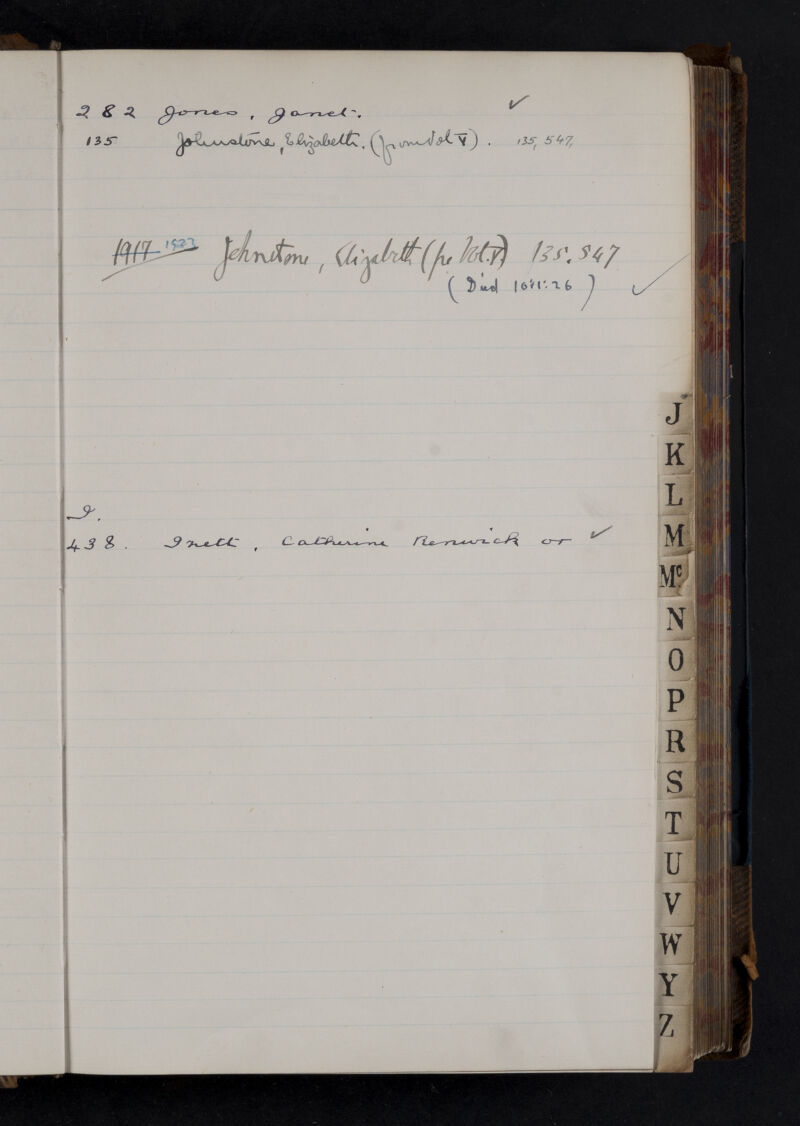 282 Jones, Janet. ✓
135 Johnstone, Elizabeth. (from Vol V). 135, 547,
1917 1922 Johnstone, Elizabeth (fr Vol. V) 135. 547
(Died ) ✓
I.
438. Inett, Catherine Renwick or ✓
J
K
L
M
Mc.
N
O
P
R
S
T
U
V
W
Y
Z